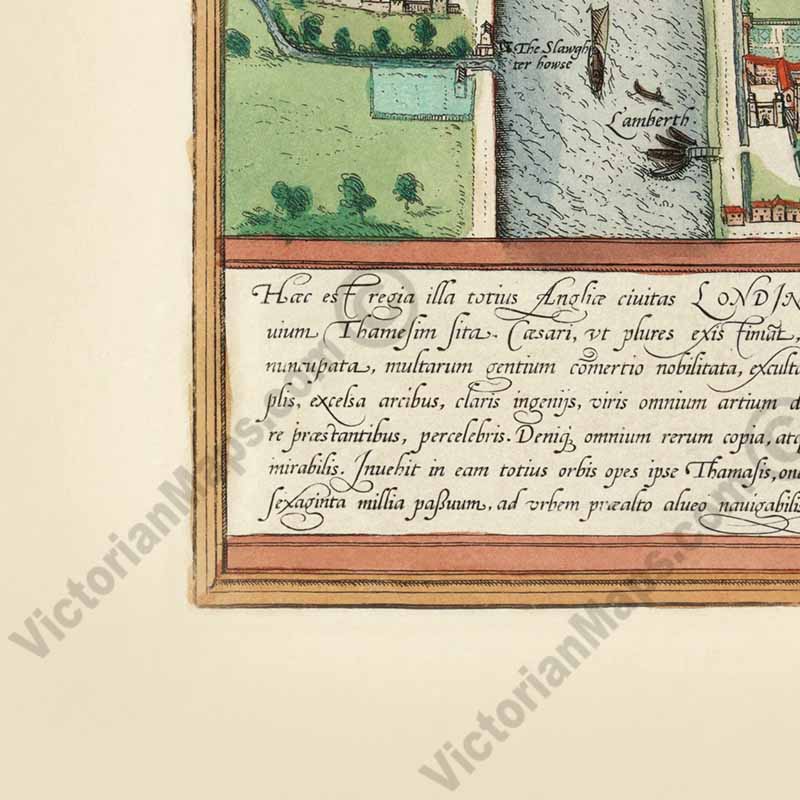 The Slawgh
ter howse
Lamberth
Hæc est regia illa totius Angliæ ciuitas LONDIN
uium Thamesim sita. Cæsari, vt plures existimāt,
nuncupata, multarum gentium cōmertio nobilitata, exculta
plis, excelsa arcibus, claris ingenijs, viris omnium artium d
re præstantibus, percelebris. Deniq; omnium rerum copia, atq
mirabilis. Inuehit in eam totius orbis opes ipse Thamasis, one
sexaginta millia paßuum, ad vrbem præalto alueo nauigabilis
VictorianMaps.com ©
VictorianMaps.com ©